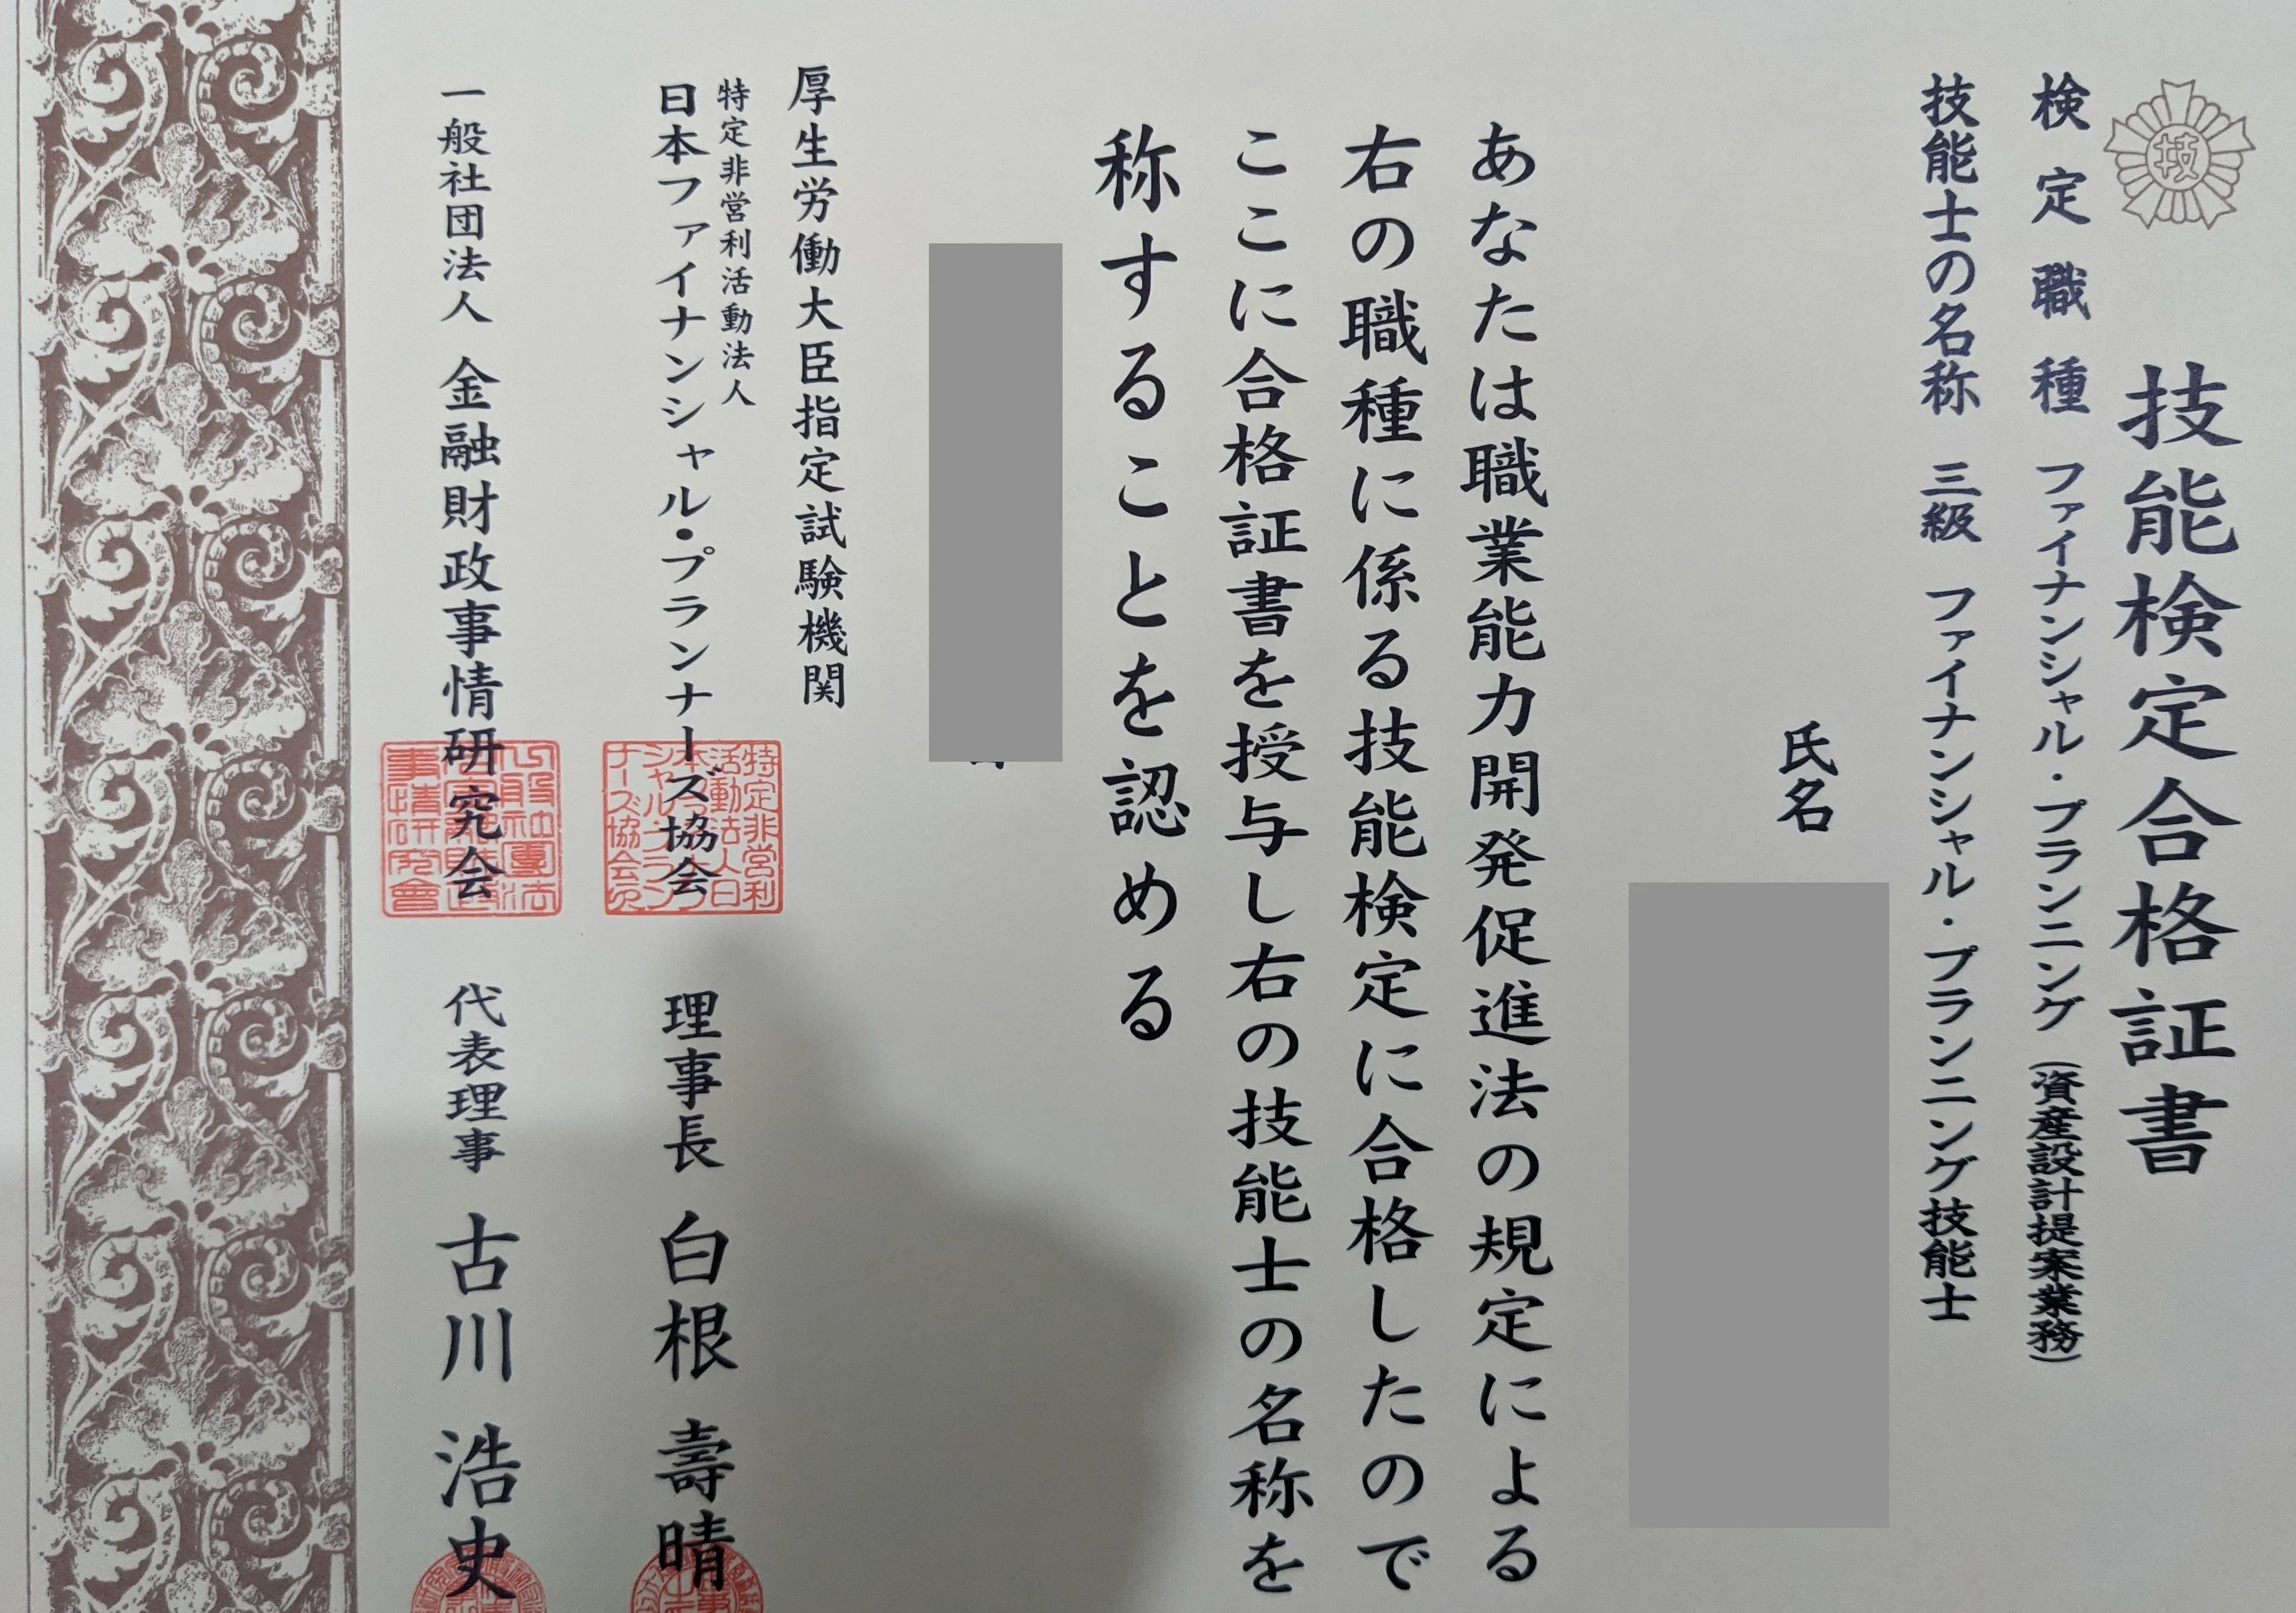 技
技能検定合格証書
検定職種 ファイナンシャル・プランニング(資産設計提案業務)
技能士の名称 三級 ファイナンシャル・プランニング技能士
氏名
あなたは職業能力開発促進法の規定による
右の職種に係る技能検定に合格したので
ここに合格証書を授与し右の技能士の名称を
称することを認める
厚生労働大臣指定試験機関
特定非営利活動法人
日本ファイナンシャル・プランナーズ協会 理事長 白根 壽晴
一般社団法人 金融財政事情研究会 代表理事 古川 浩史